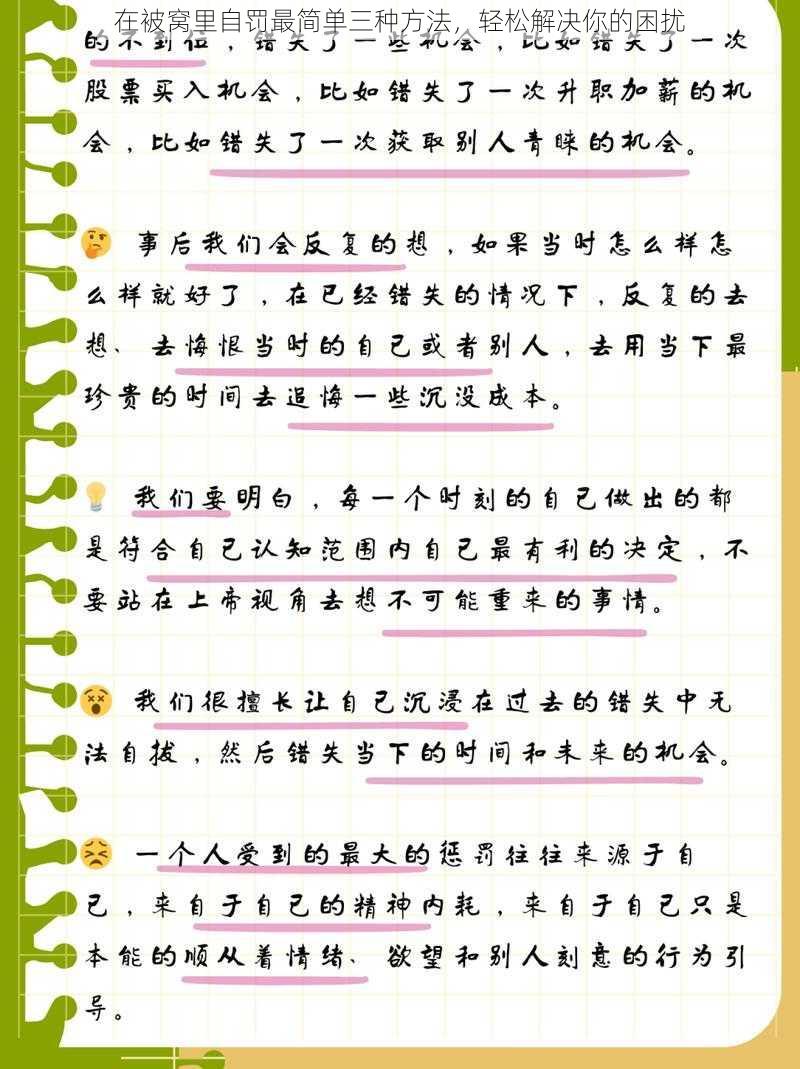 在被窝里自罚最简单三种方法，轻松解决你的困扰
的不到位，错失了一些机会，比如错失了一次
股票买入机会，比如错失了一次升职加薪的机
会，比如错失了一次获取别人青睐的机会。
事后我们会反复的想，如果当时怎么样怎
么样就好了，在已经错失的情况下，反复的去
想、去悔恨当时的自己或者别人，去用当下最
珍贵的时间去追悔一些沉没成本。
我们要明白，每一个时刻的自己做出的都
是符合自己认知范围内自己最有利的决定，不
要站在上帝视角去想不可能重来的事情。
我们很擅长让自己沉浸在过去的错失中无
法自拔，然后错失当下的时间和未来的机会。
一个人受到的最大的惩罚往往来源于自
己，来自于自己的精神内耗，来自于自己只是
本能的顺从着情绪、欲望和别人刻意的行为引
导。